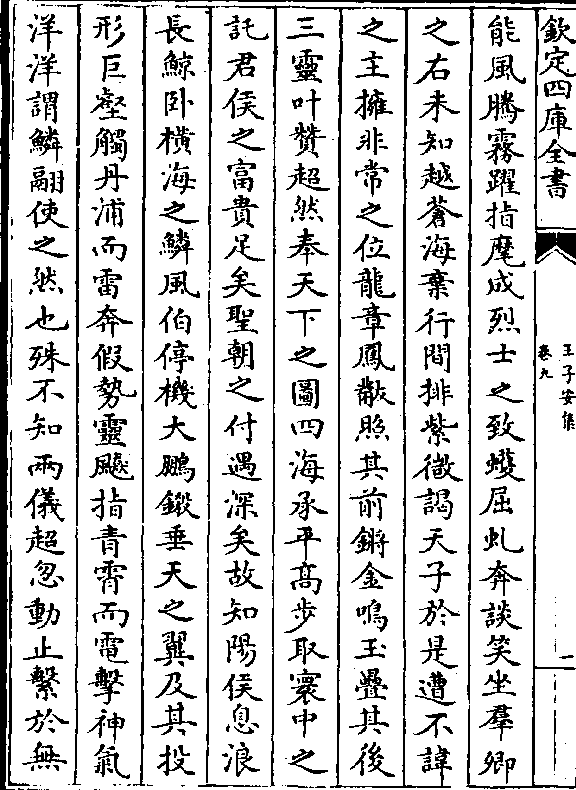 欽定四庫全書
王子安集
卷九
一
能風騰霧躍指麾成烈士之致蠖屈虬奔談笑坐羣卿
之右未知越蒼海棄行間排紫微謁天子於是遭不諱
之主擁非常之位龍章鳳黻照其前鏘金鳴玉疊其後
三靈叶贊超然奉天下之圖四海承平髙步取寰中之
託君侯之富貴足矣聖朝之付遇深矣故知陽侯息浪
長鯨卧橫海之鱗風伯停機大鵬鎩垂天之翼及其投
形巨壑觸丹浦而雷奔假勢靈飈指青霄而電擊神氣
洋洋謂鱗翮使之然也殊不知兩儀超忽動止繫於無